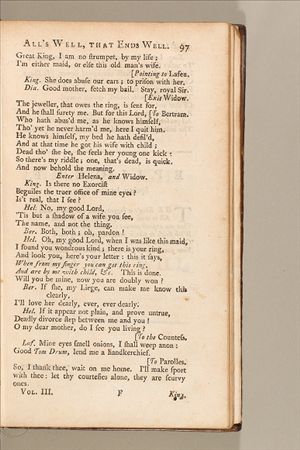 ALL'S WELL, THAT ENDS WELL. 97
Great King, I am no ſtrumpet, by my life;
I'm either maid, or elſe this old man's wife.
[Pointing to Lafeu.
King. She does abuſe our ears; to priſon with her.
Dia. Good mother, fetch my bail. Stay, royal Sir,
[Exit Widow.
The jeweller, that owes the ring, is ſent for,
And he ſhall ſurety me. But for this Lord, [To Bertram.
Who hath abus'd me, as he knows himſelf,
Tho' yet he never harm'd me, here I quit him.
He knows himſelf, my bed he hath defil'd,
And at that time he got his wife with child;
Dead tho' ſhe be, ſhe feels her young one kick:
So there's my riddle; one, that's dead, is quick.
And now behold the meaning.
Enter Helena, and Widow.
King. Is there no Exorciſt
Beguiles the truer office of mine eyes?
Is't real, that I ſee?
Hel. No, my good Lord,
'Tis but a ſhadow of a wife you ſee,
The name, and not the thing.
Ber. Both, both; oh, pardon!
Hel. Oh, my good Lord, when I was like this maid,
I found you wondrous kind; there is your ring,
And look you, here's your letter: this it ſays,
When from my finger you can get this ring,
And are by me with child, &c. This is done.
Will you be mine, now you are doubly won?
Ber. If ſhe, my Liege, can make me know this
clearly,
I'll love her dearly, ever, ever dearly.
Hel. If it appear not plain, and prove untrue,
Deadly divorce ſtep between me and you!
O my dear mother, do I ſee you living?
[To the Counteſs.
Laf. Mine eyes ſmell onions, I ſhall weep anon:
Good Tom Drum, lend me a handkerchief.
[To Parolles.
So, I thank thee, wait on me home. I'll make ſport
with thee: let thy courteſies alone, they are ſcurvy
ones.
VOL. III. F King.